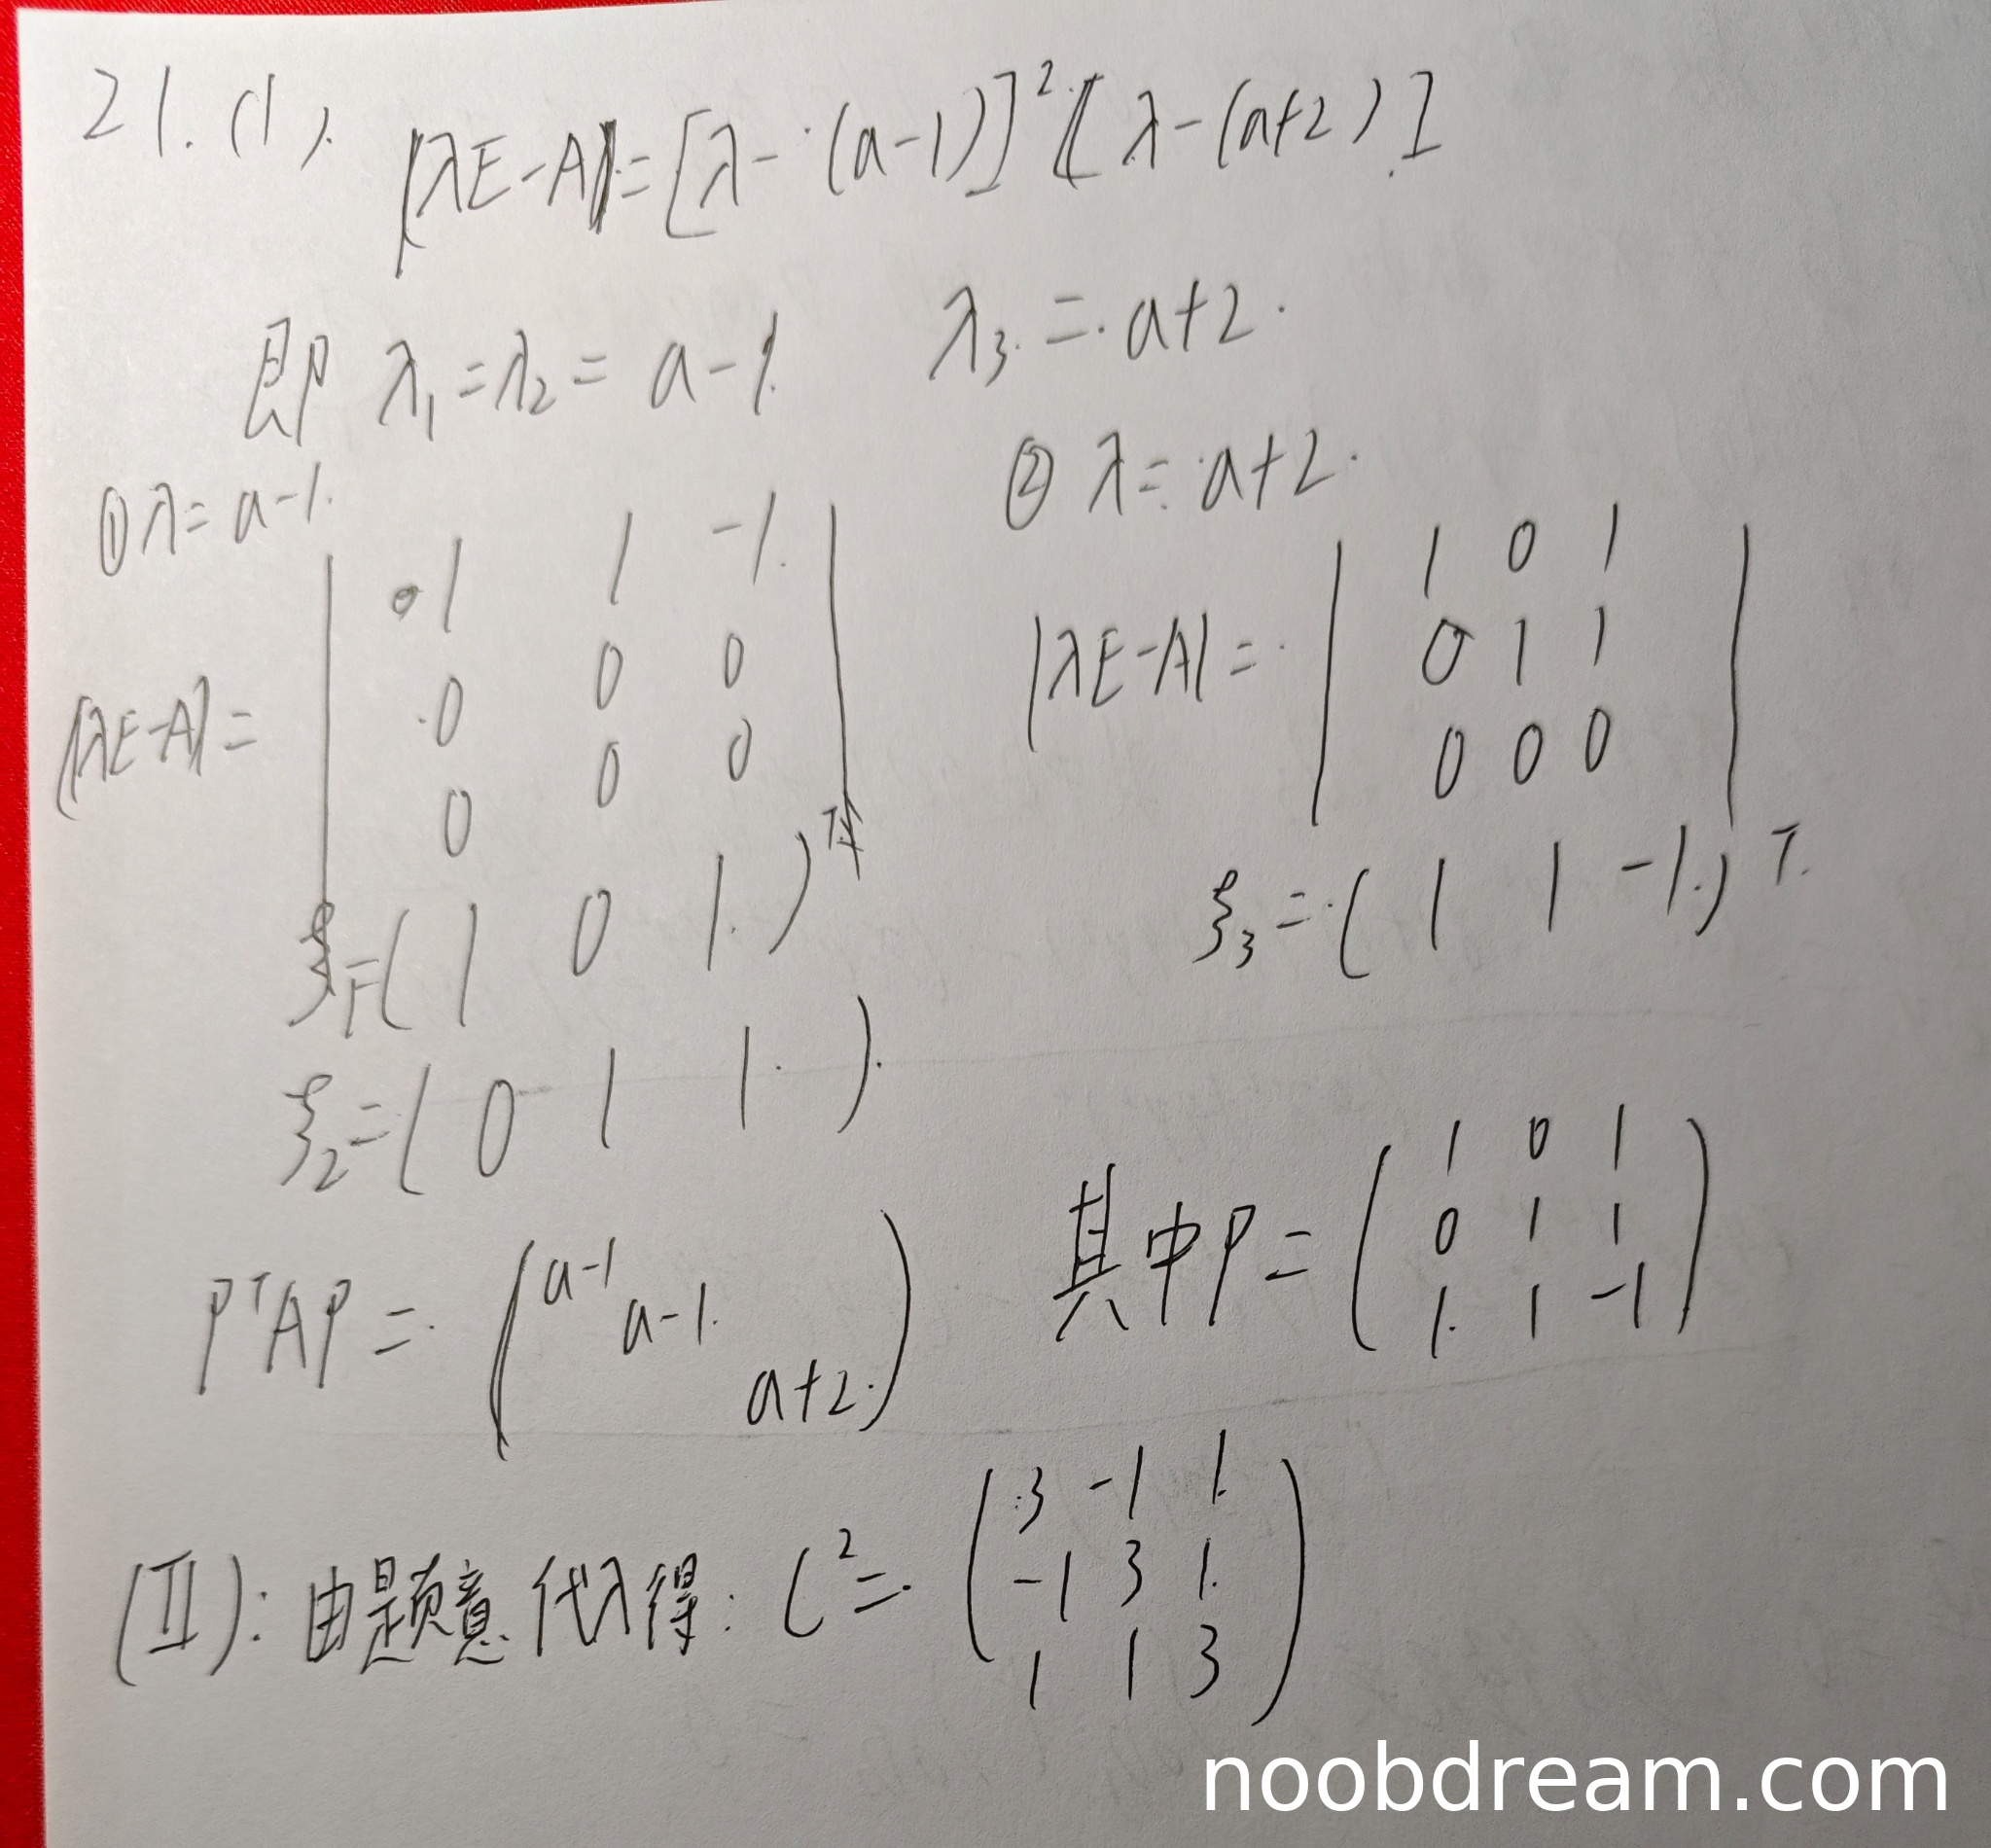 21. (1). |λE-A|=[λ-(a-1)]²[λ-(a+2)]
即 λ₁=λ₂=a-1. λ₃=a+2.
① λ=a-1.
|λE-A|= | 1 1 -1 |
| 0 0 0 |
| 0 0 0 |
ξ₁=(1 0 1)ᵀ
ξ₂=(0 1 1).
② λ=a+2.
|λE-A|= | 1 0 1 |
| 0 1 1 |
| 0 0 0 |
ξ₃=(1 1 -1)ᵀ.
PᵀAP= ( a-1
a-1
a+2 )
其中P= ( 1 0 1
0 1 1
1 1 -1 )
(Ⅱ): 由题意代入得: C²= ( 3 -1 1
-1 3 1
1 1 3 )
noobdream.com